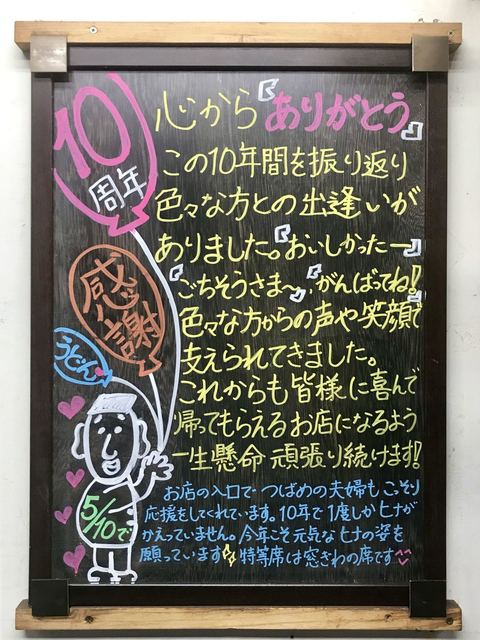 10
周年
感謝
うどん
5/10で
心から『ありがとう』
この10年間を振り返り
色々な方との出逢いが
ありました。『おいしかったー』
『ごちそうさま～』『がんばってね!』
色々な方からの声や笑顔で
支えられてきました。
これからも皆様に喜んで
帰ってもらえるお店になるよう
一生懸命 頑張り続けます!
お店の入口で つばめの夫婦も こっそり
応援をしてくれています。10年で1度しか ヒナが
かえっていません。今年こそ元気な ヒナの姿を
願っています 特等席は窓ぎわの席です